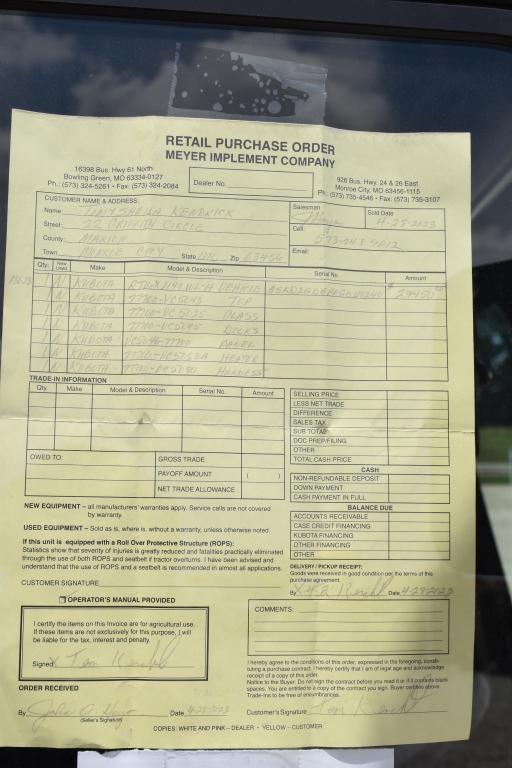 RETAIL PURCHASE ORDER
MEYER IMPLEMENT COMPANY
16398 Bus. Hwy 61 North
Bowling Green, MO 63334-0127
Ph.: (573) 324-5261 • Fax: (573) 324-2084
Dealer No.
926 Bus. Hwy. 24 & 26 East
Monroe City, MO 63456-1115
Ph. (573) 735-4546 • Fax: (573) 735-3107
CUSTOMER NAME & ADDRESS:
Salesman
Sold Date
Name Tom/Sheila Kendrick
4-28-2023
Street: 22 Griffith Circle
Cell:
County: Marion
Email:
Town State MO Zip 63456
Qty. New Used Make Model & Description Serial No. Amount
1 N Kubota Vehicle
1 N Kubota 77700-VC5043 Top
1 N Kubota 77700-VC5025 Glass
1 N Kubota Doors
1 N Kubota Panel
1 N Kubota Heater
1 N Kubota Harness
TRADE-IN INFORMATION
Qty. Make Model & Description Serial No. Amount
SELLING PRICE
LESS NET TRADE
DIFFERENCE
SALES TAX
SUB TOTAL
DOC PREP/FILING
OTHER
TOTAL CASH PRICE
OWED TO:
GROSS TRADE
PAYOFF AMOUNT ( )
NET TRADE ALLOWANCE
CASH
NON-REFUNDABLE DEPOSIT
DOWN PAYMENT
CASH PAYMENT IN FULL
BALANCE DUE
ACCOUNTS RECEIVABLE
CASE CREDIT FINANCING
KUBOTA FINANCING
OTHER FINANCING
OTHER
NEW EQUIPMENT – all manufacturers' warranties apply. Service calls are not covered
by warranty.
USED EQUIPMENT – Sold as is, where is, without a warranty, unless otherwise noted.
If this unit is equipped with a Roll Over Protective Structure (ROPS):
Statistics show that severity of injuries is greatly reduced and fatalities practically eliminated
through the use of both ROPS and seatbelt if tractor overturns. I have been advised and
understand that the use of ROPS and a seatbelt is recommended in almost all applications.
CUSTOMER SIGNATURE
DELIVERY / PICKUP RECEIPT:
Goods were received in good condition per the terms of this
purchase agreement.
By Date 4-28-2023
OPERATOR'S MANUAL PROVIDED
I certify the items on this Invoice are for agricultural use.
If these items are not exclusively for this purpose, I will
be liable for the tax, interest and penalty.
Signed X
COMMENTS:
I hereby agree to the conditions of this order, expressed in the foregoing, consti-
tuting a purchase contract. I hereby certify that I am of legal age and acknowledge
receipt of a copy of this order.
Notice to the Buyer: Do not sign the contract before you read it or if it contains blank
spaces. You are entitled to a copy of the contract you sign. Buyer certifies above
Trade-Ins to be free of encumbrances.
ORDER RECEIVED
By Date 4-28-2023
(Seller's Signature)
Customer's Signature
COPIES: WHITE AND PINK – DEALER • YELLOW – CUSTOMER